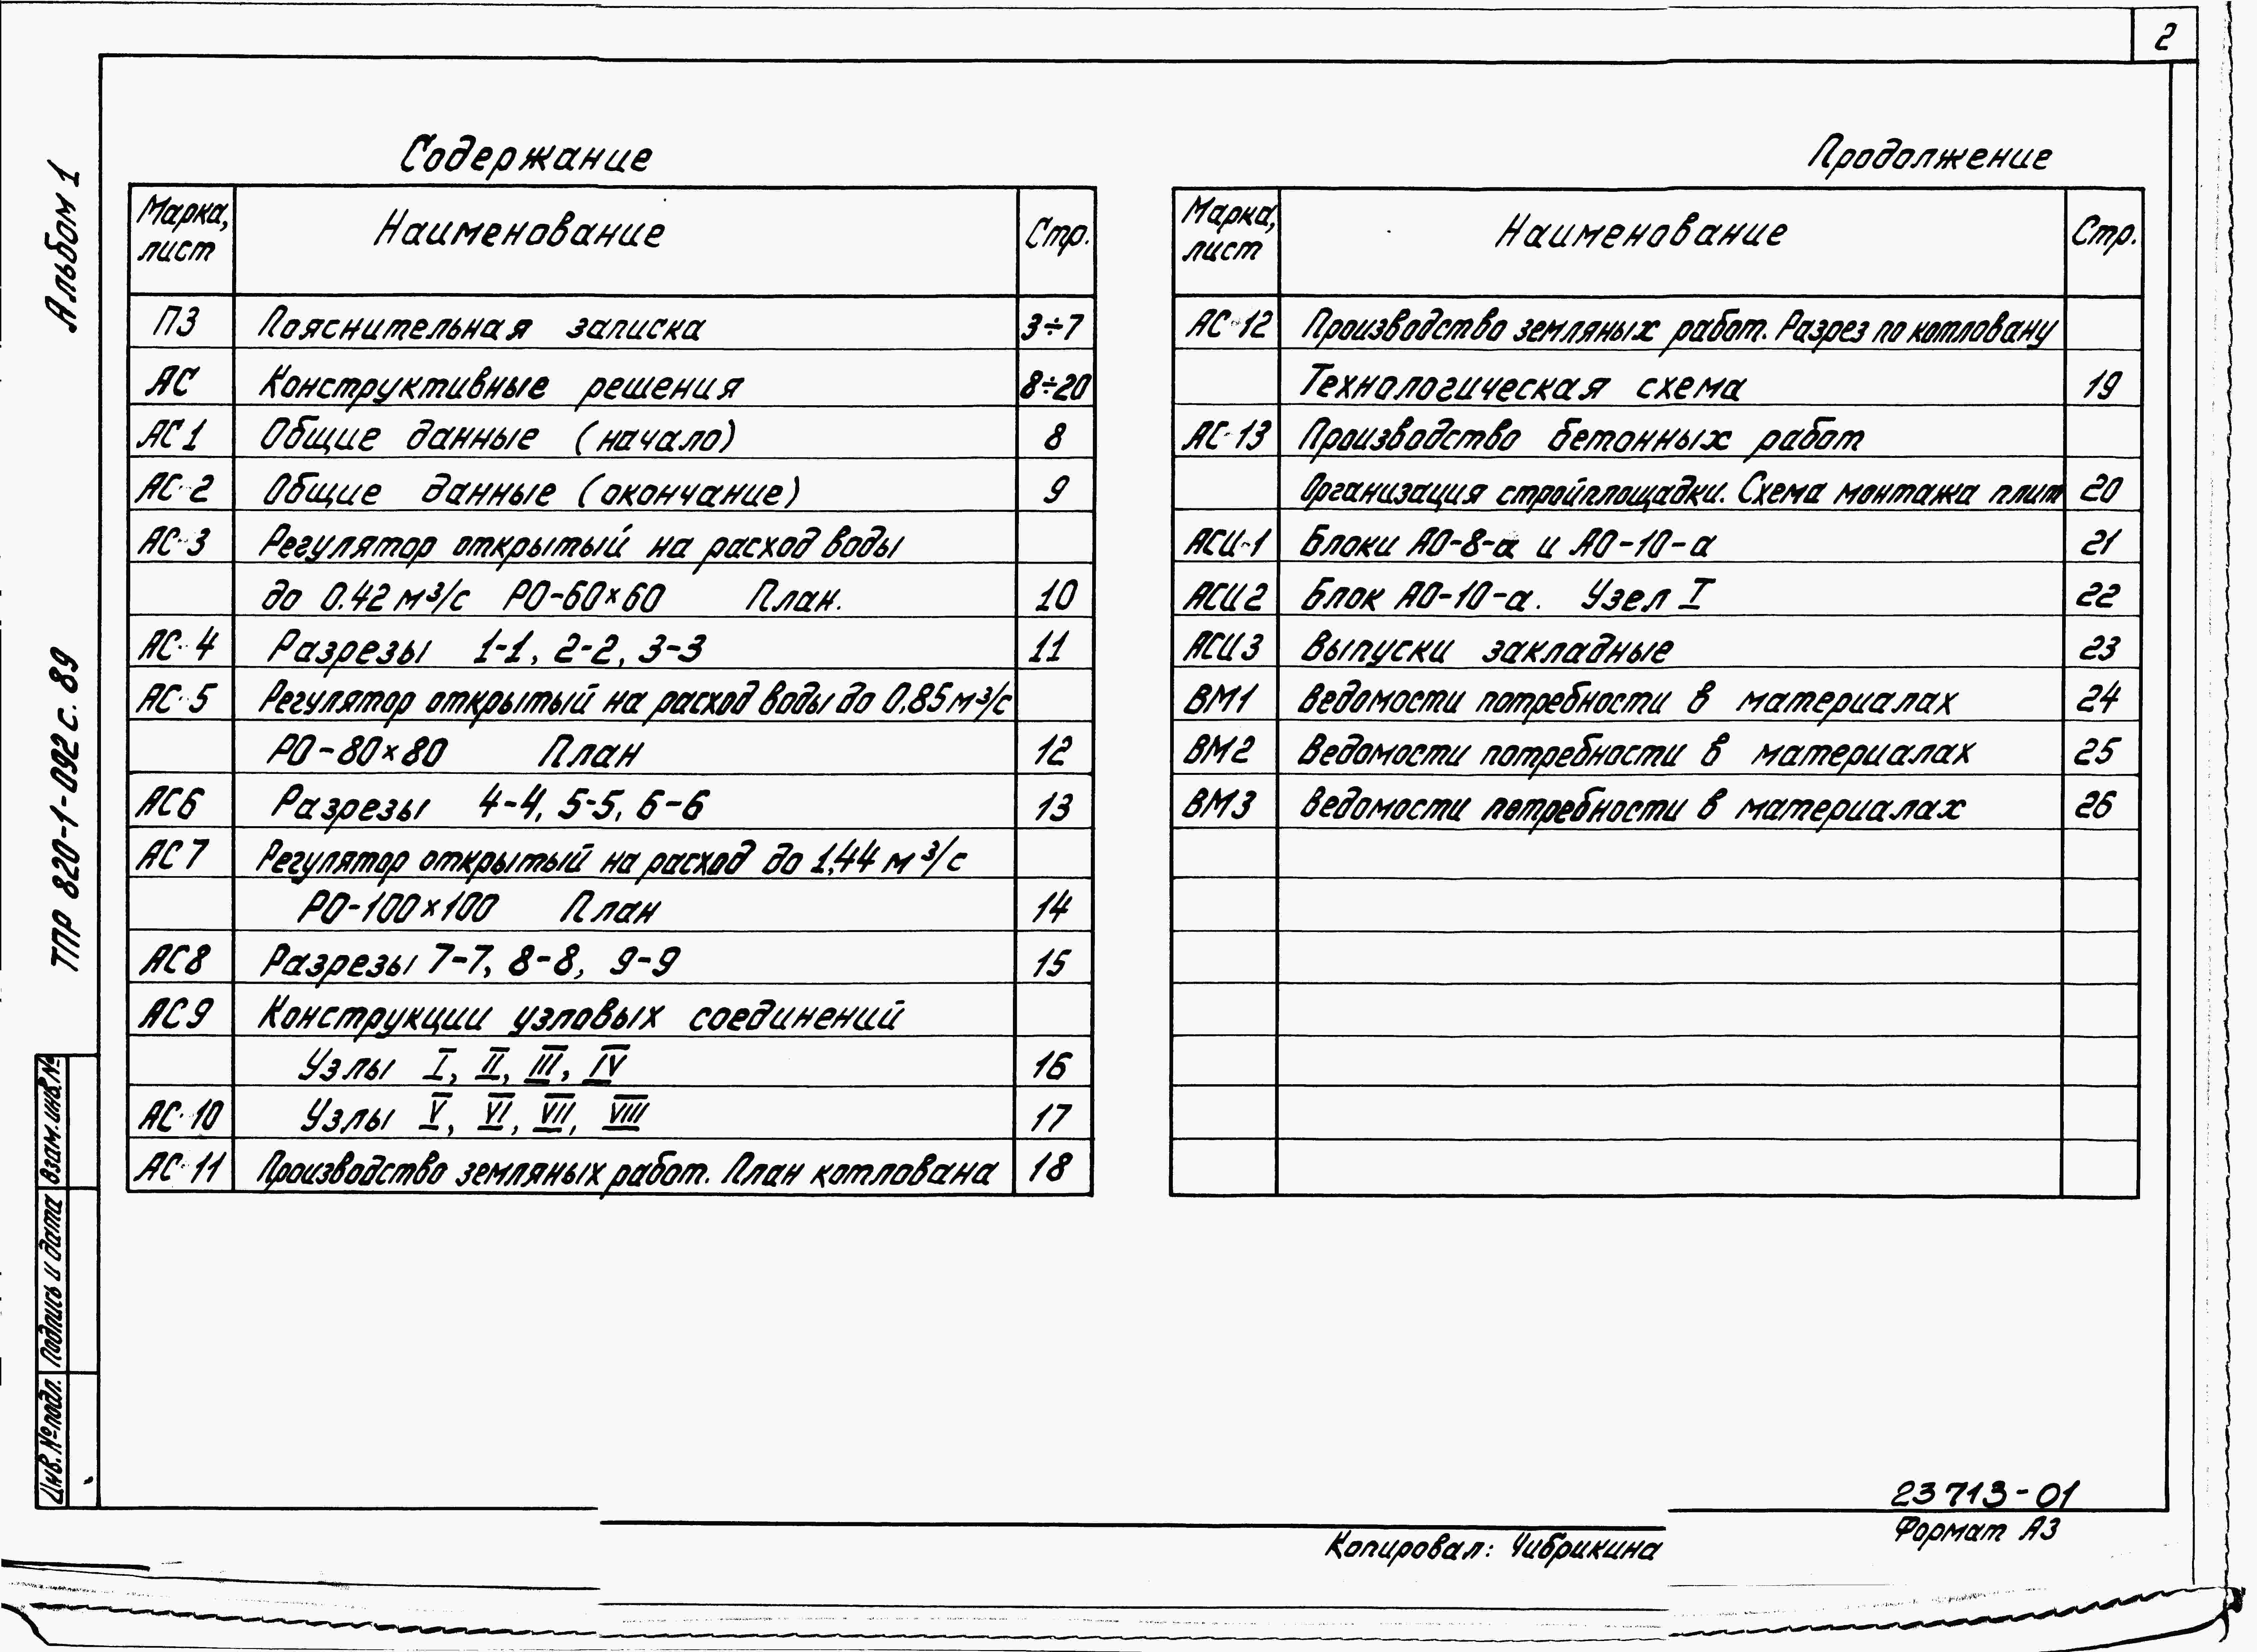 2
Альбом 1
ТПР 820-1-092 с. 89
Содержание
Марка, лист Наименование Стр.
ПЗ Пояснительная записка 3÷7
АС Конструктивные решения 8÷20
АС1 Общие данные (начало) 8
АС-2 Общие данные (окончание) 9
АС-3 Регулятор открытый на расход воды
до 0.42 м³/с РО-60×60 План. 10
АС-4 Разрезы 1-1, 2-2, 3-3 11
АС-5 Регулятор открытый на расход воды до 0,85 м³/с
РО-80×80 План 12
АС6 Разрезы 4-4, 5-5, 6-6 13
АС7 Регулятор открытый на расход до 1,44 м³/с
РО-100×100 План 14
АС8 Разрезы 7-7, 8-8, 9-9 15
АС9 Конструкции узловых соединений
Узлы I, II, III, IV 16
АС-10 Узлы V, VI, VII, VIII 17
АС-11 Производство земляных работ. План котлована 18
Продолжение
Марка, лист Наименование Стр.
АС-12 Производство земляных работ. Разрез по котловану
Технологическая схема 19
АС-13 Производство бетонных работ
Организация стройплощадки. Схема монтажа плит 20
АСИ-1 Блоки АО-8-а и АО-10-а 21
АСИ2 Блок АО-10-а. Узел I 22
АСИ3 Выпуски закладные 23
ВМ1 Ведомости потребности в материалах 24
ВМ2 Ведомости потребности в материалах 25
ВМ3 Ведомости потребности в материалах 26
Инв. № подл. Подпись и дата Взам. инв. №
23713-01
Копировал: Чибрикина
Формат А3